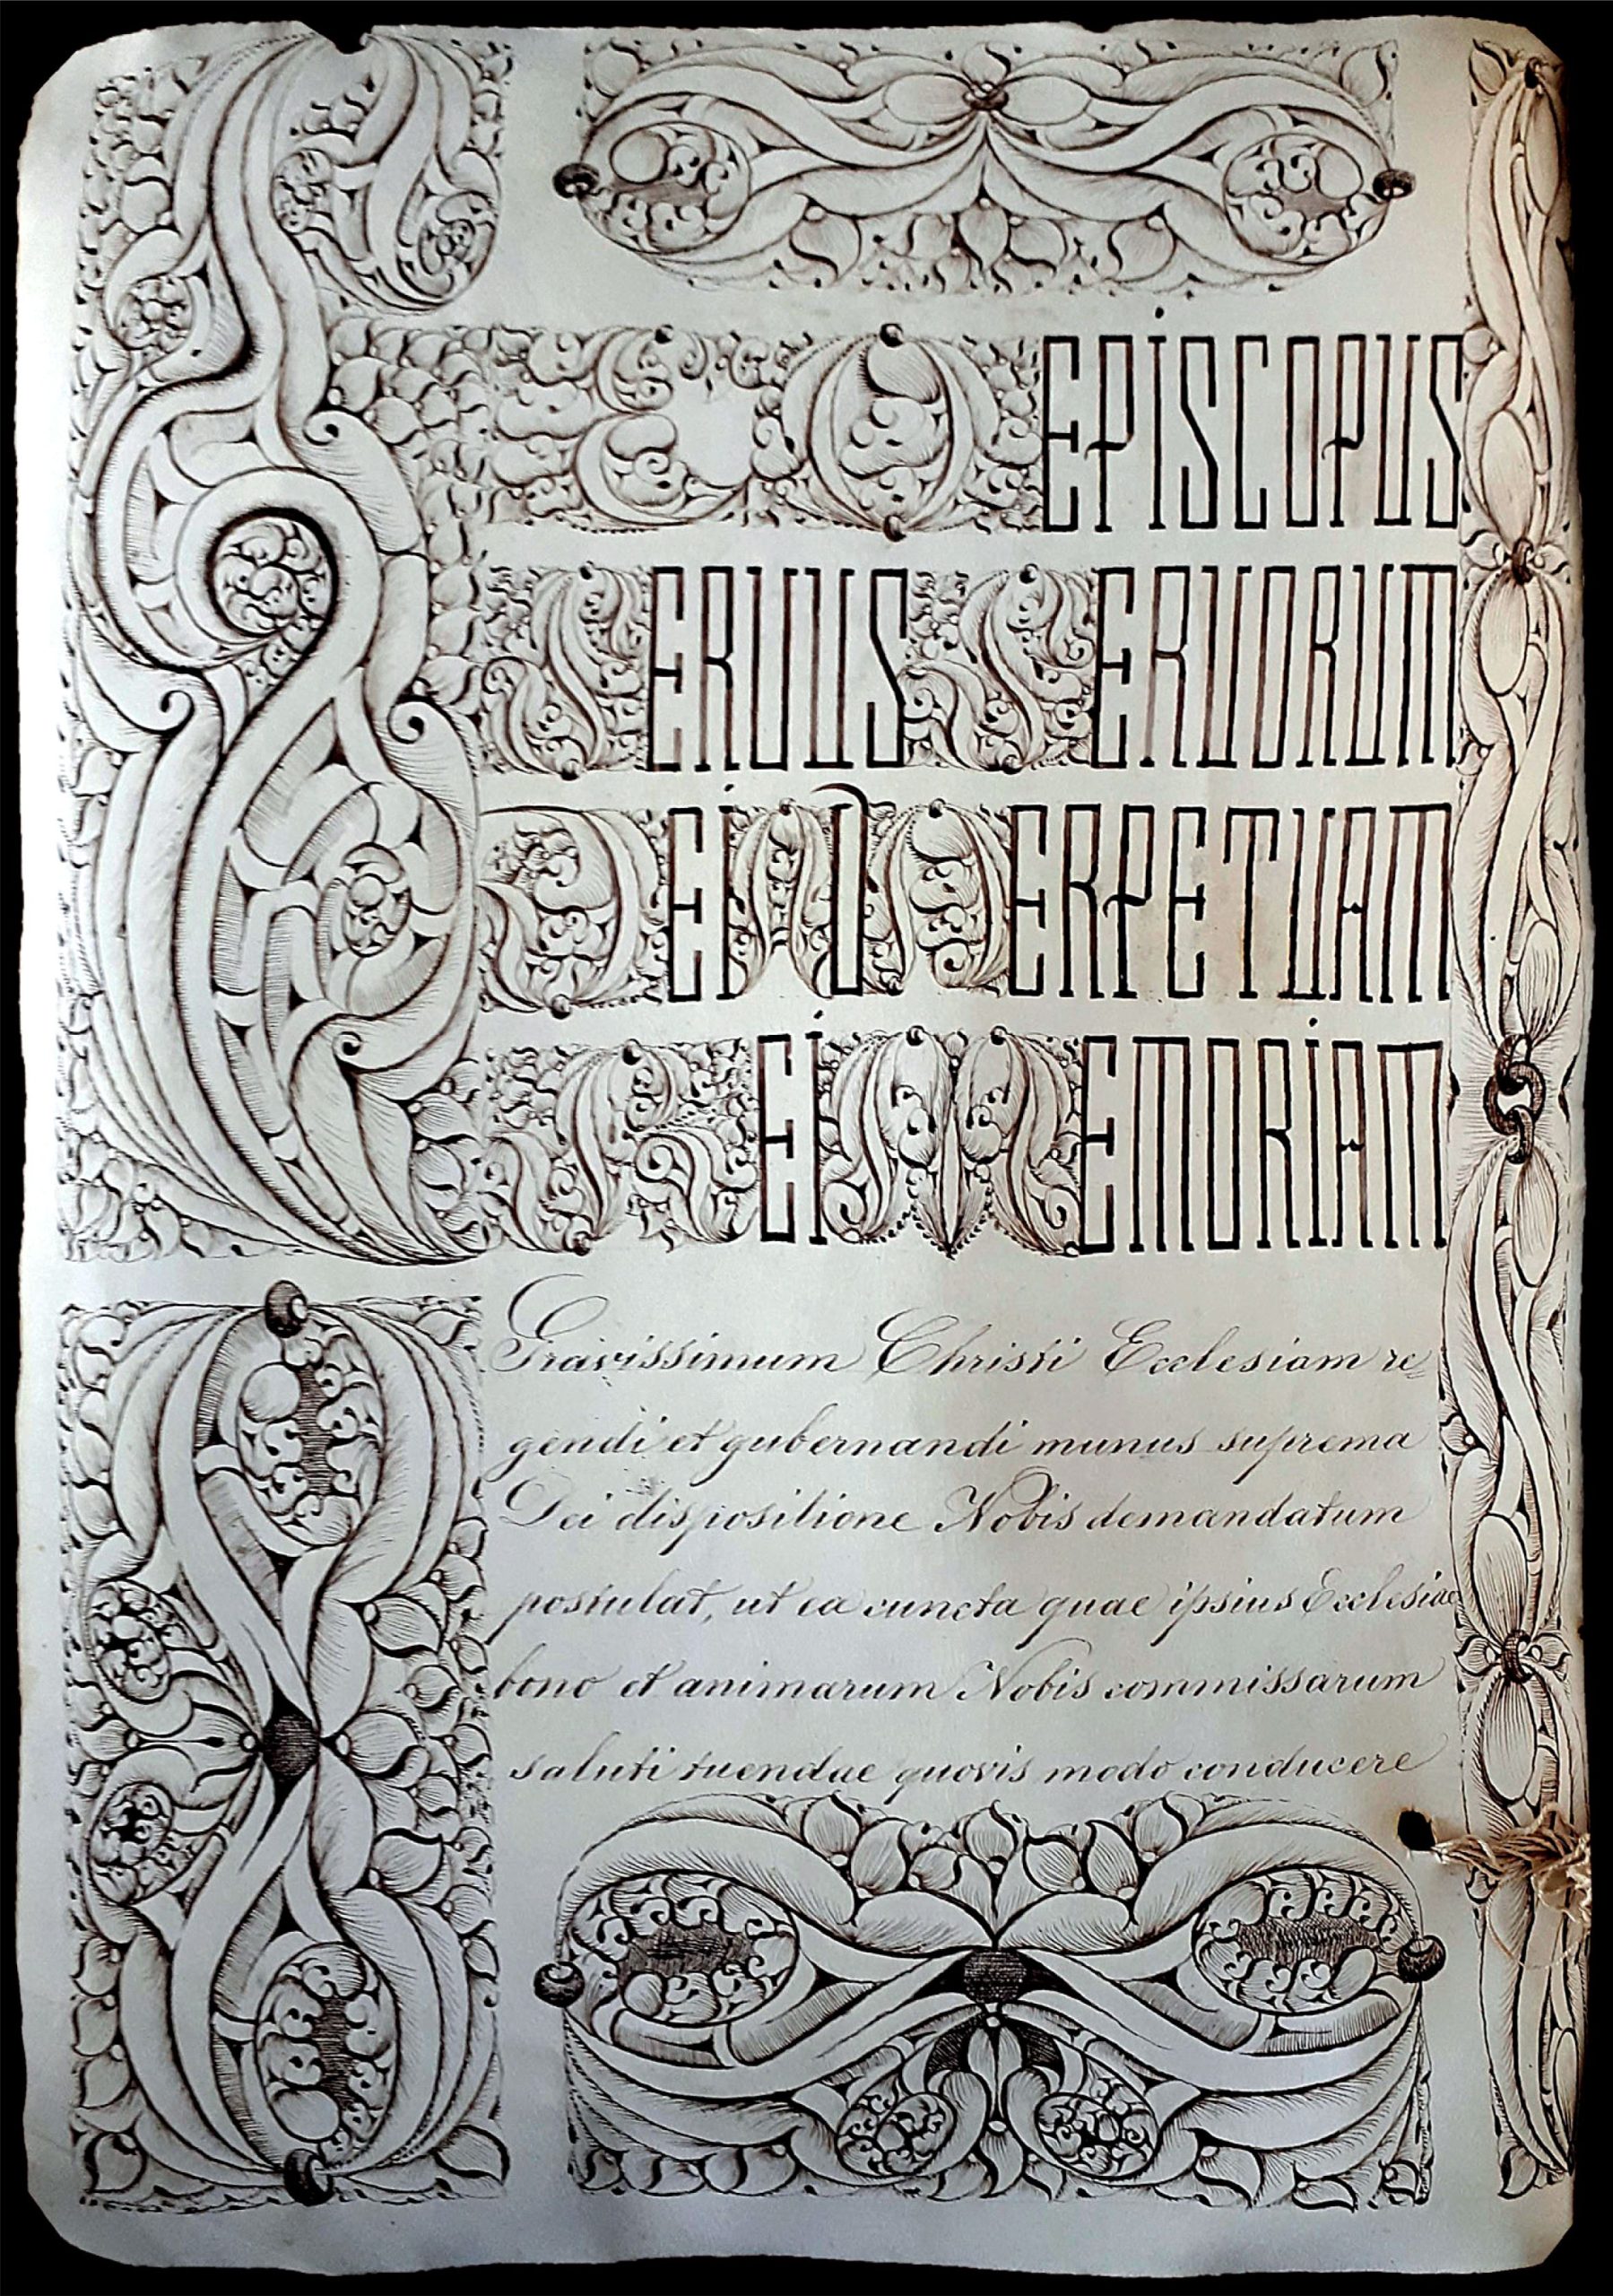 LEO EPISCOPUS
SERVUS SERVORUM
DEI AD PERPETUAM
REI MEMORIAM
Gravissimum Christi Ecclesiam re=
gendi et gubernandi munus suprema
Dei dispositione Nobis demandatum
postulat, ut ea cuncta quae ipsius Ecclesiae
bono et animarum Nobis commissarum
saluti tuendae quovis modo conducere